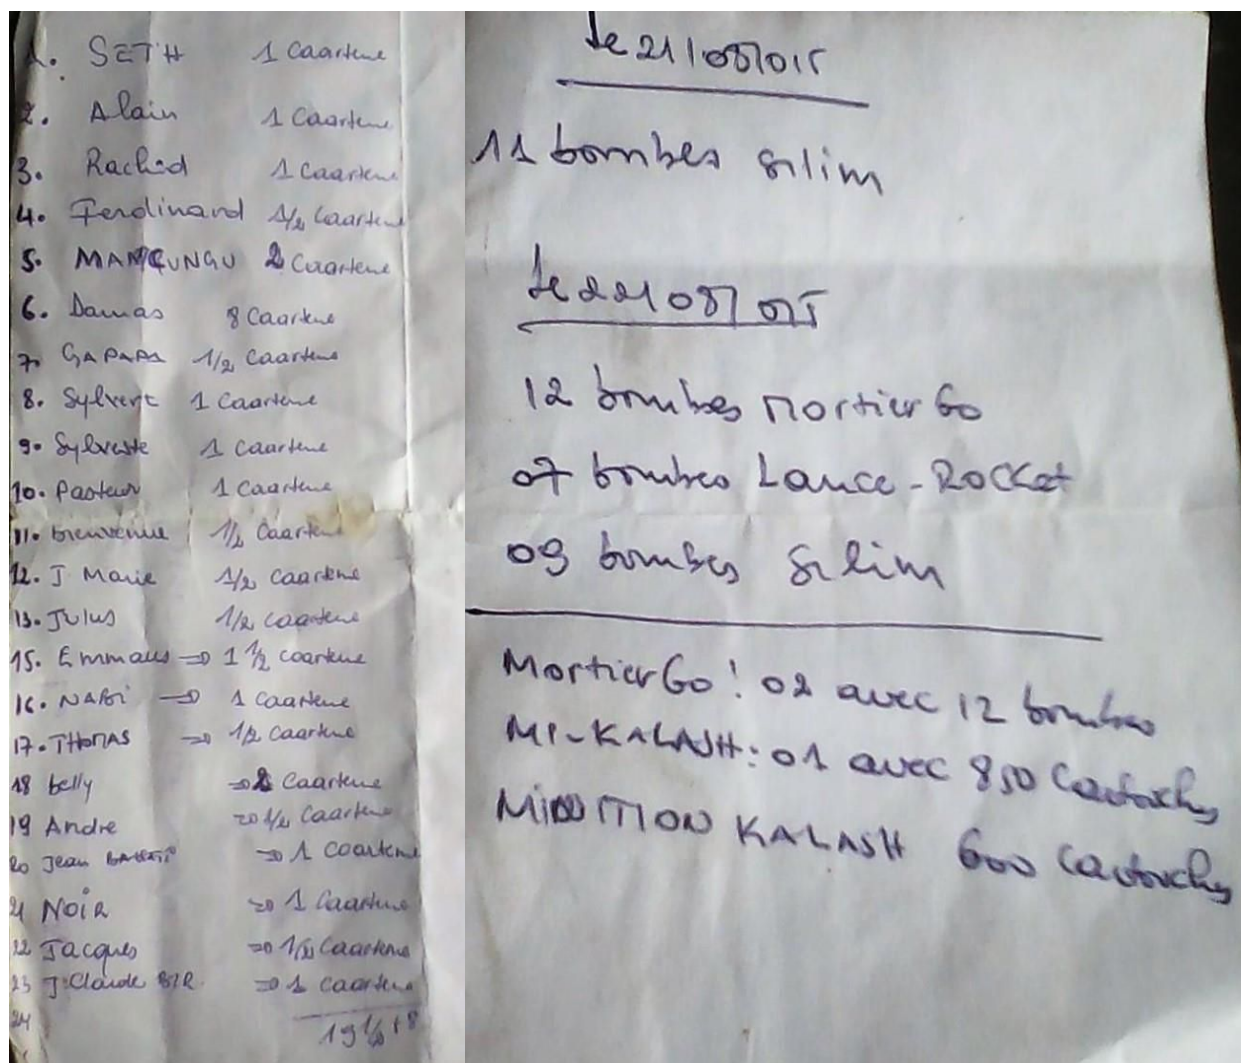 1. SETH 1 Caartene
2. Alain 1 Caartene
3. Rachid 1 Caartene
4. Ferdinand 1/2 Caartene
5. 2 Caartene
6. Damas 8 Caartene
7. GAPAPA 1/2 Caartene
8. Sylvert 1 Caartene
9. Sylveste 1 Caartene
10. Pasteur 1 Caartene
11. bienvenue 1/2 Caartene
12. J Marie 1/2 Caartene
13. Julus 1/2 Caartene
15. Emmaus => 1 1/2 Caartene
16. NABi -> 1 Caartene
17. THOMAS => 1/2 Caartene
18 belly => 2 Caartene
19 Andre => 1/2 Caartene
20 Jean => 1 Caartene
21 NOIR => 1 Caartene
22 Jacques => 1/2 Caartene
23 J. Claude => 1 Caartene
24
19 1/2 + 8
Le 21/08/015
11 bombes silim
Le 22/08/015
12 bombes Mortier 60
07 bombes Lance-Rocket
09 bombes silim
Mortier 60 : 02 avec 12 bombes
Mi-KALASH : 01 avec 850 Cartouches
MINITION KALASH 600 Cartouches